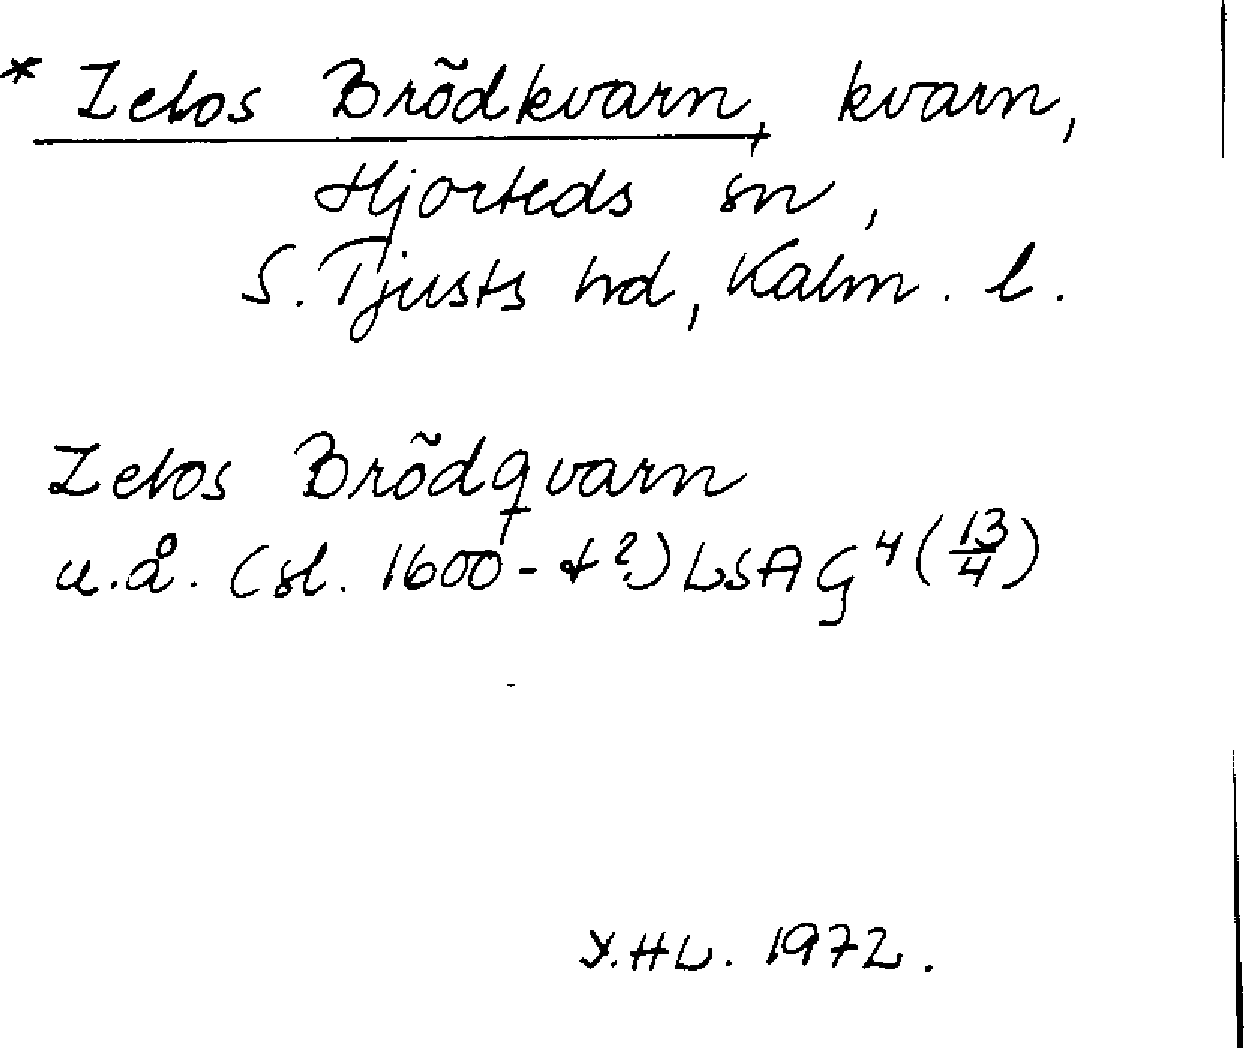 * Zebos Brõdkvarn, kvarn,
Hjorteds sn,
S. Tjusts hd, Kalm. l.
Zebos Brõdqvarn
u.å. (sl. 1600-t?) LSA G4 (13/4)
Y.HL. 1972.